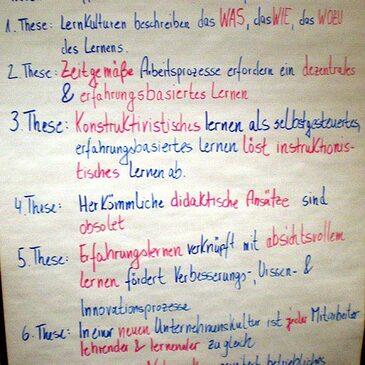 1. These: LernKulturen beschreiben das WAS, das WIE, das WOZU
des Lernens.
2. These: Zeitgemäße Arbeitsprozesse erfordern ein dezentrales
& erfahrungsbasiertes Lernen
3. These: Konstruktivistisches lernen als selbstgesteuertes,
erfahrungsbasiertes Lernen löst instruktionis-
tisches Lernen ab.
4. These: Herkömmliche didaktische Ansätze sind
obsolet
5. These: Erfahrungslernen verknüpft mit absichtsvollem
lernen fördert Verbesserungs-, Wissen- &
Innovationsprozesse
6. These: In einer neuen Unternehmenskultur ist jeder Mitarbeiter
lehrender & lernender zu gleich
betriebliches